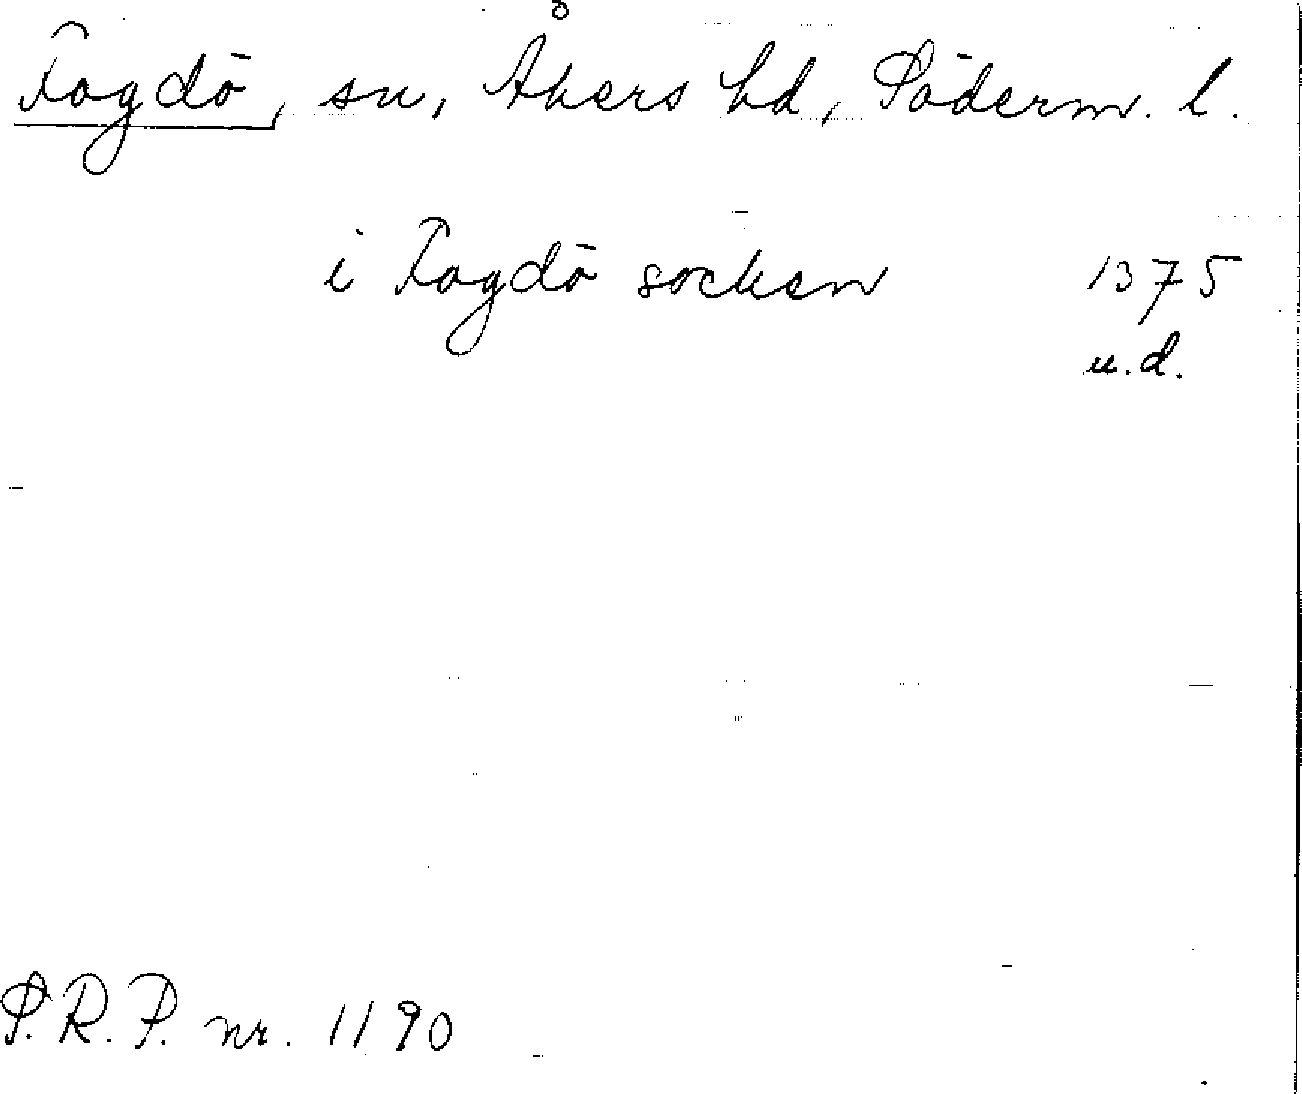 Fogdö, sn, Åkers hd, Söderm. l.
i Fogdö socken 1375
u.d.
S.R.P. nr. 1190